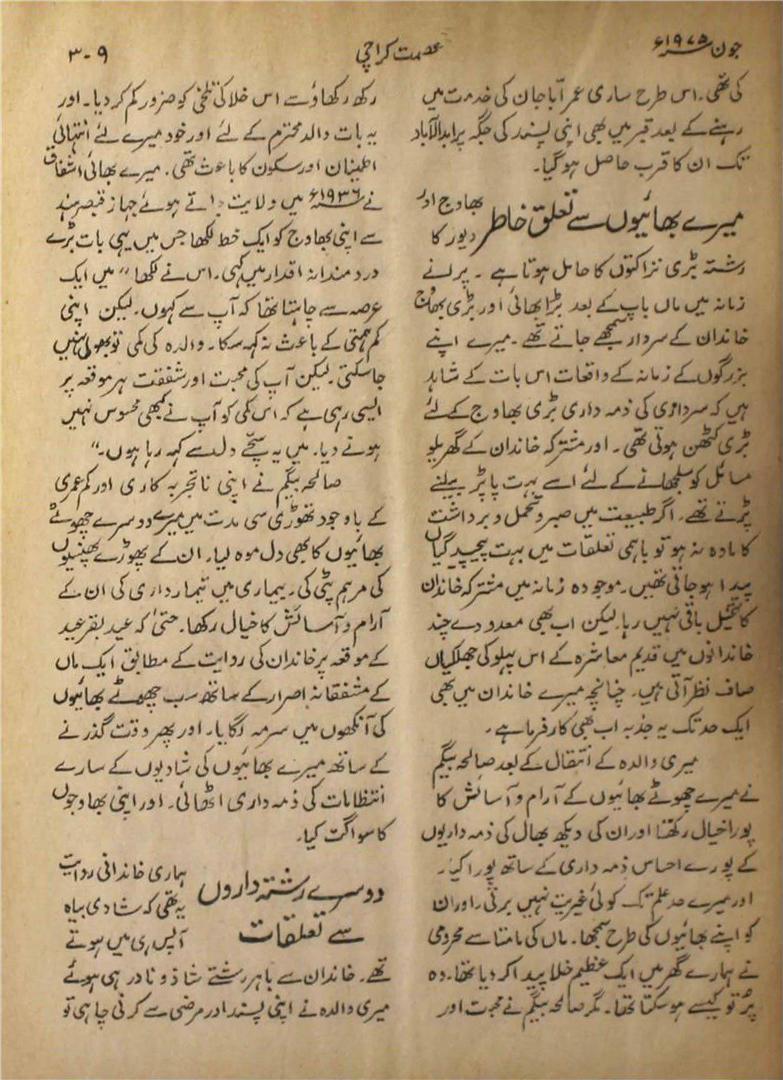 جون ۱۹۷۵ء
عصمت کراچی
۳۰۹
کی تھی۔ اس طرح ساری عمر آپا جان کی خدمت میں
رہنے کے بعد قبر میں بھی اپنی پسند کی جگہ پر ابدالآباد
تک ان کا قرب حاصل ہو گیا۔
میرے بھائیوں سے تعلق خاطر
بھاوج اور
دیور کا
رشتہ بڑی نزاکتوں کا حامل ہوتا ہے ۔ پرانے
زمانہ میں ماں باپ کے بعد بڑا بھائی اور بڑی بھاوج
خاندان کے سردار سمجھے جاتے تھے ۔ میرے اپنے
بزرگوں کے زمانہ کے واقعات اس بات کے شاہد
ہیں کہ سرداری کی ذمہ داری بڑی بھاوج کے لئے
بڑی کٹھن ہوتی تھی ۔ اور مشترکہ خاندان کے گھریلو
مسائل کو سلجھانے کے لئے اسے بہت پاپڑ بیلنے
پڑتے تھے۔ اگر طبیعت میں صبر و تحمل و برداشت
کا مادہ نہ ہو تو باہمی تعلقات میں بہت پیچیدگیاں
پیدا ہو جاتی تھیں۔ موجودہ زمانہ میں مشترکہ خاندان
کا تخیل باقی نہیں رہا لیکن اب بھی معدودے چند
خاندانوں میں قدیم معاشرہ کے اس پہلو کی جھلکیاں
صاف نظر آتی ہیں۔ چنانچہ میرے خاندان میں بھی
ایک حد تک یہ جذبہ اب بھی کارفرما ہے ۔
میری والدہ کے انتقال کے بعد صالحہ بیگم
نے میرے چھوٹے بھائیوں کے آرام و آسائش کا
پورا خیال رکھنا اور ان کی دیکھ بھال کی ذمہ داریوں
کے پورے احساس ذمہ داری کے ساتھ پورا کیا۔
اور میرے حد علم تک کوئی غیریت نہیں برتی، اور ان
کو اپنے بھائیوں کی طرح سمجھا۔ ماں کی مامتا سے محرومی
نے ہمارے گھر میں ایک عظیم خلا پیدا کر دیا تھا۔ وہ
پُر تو کیسے ہو سکتا تھا۔ مگر صالحہ بیگم نے محبت اور
رکھ رکھاؤ سے اس خلا کی تلخی کو ضرور کم کر دیا۔ اور
یہ بات والد محترم کے لئے اور خود میرے لئے انتہائی
اطینان اور سکون کا باعث تھی ۔ میرے بھائی اشفاق
نے ۱۹۳۶ء میں ولایت جاتے ہوئے جہاز قیصر ہند
سے اپنی بھاوج کو ایک خط لکھا جس میں یہی بات بڑے
دردمندانہ اقدار میں کہی۔ اس نے لکھا ”میں ایک
عرصہ سے چاہتا تھا کہ آپ سے کہوں۔ لیکن اپنی
کم ہمتی کے باعث نہ کہہ سکا۔ والدہ کی کمی تو بھولی نہیں
جا سکتی۔ لیکن آپ کی محبت اور شفقت ہر موقعہ پر
ایسی رہی ہے کہ اس کمی کو آپ نے کبھی محسوس نہیں
ہونے دیا۔ میں یہ سچے دل سے کہہ رہا ہوں۔“
صالحہ بیگم نے اپنی ناتجربہ کاری اور کم عمری
کے باوجود تھوڑی سی مدت میں میرے دوسرے چھوٹے
بھائیوں کا بھی دل موہ لیا۔ ان کے پھوڑے پھنسیوں
کی مرہم پٹی کی۔ بیماری میں تیمارداری کی ان کے
آرام و آسائش کا خیال رکھا۔ حتیٰ کہ عید بقر عید
کے موقعہ پر خاندان کی روایت کے مطابق ایک ماں
کے مشفقانہ اصرار کے ساتھ سب چھوٹے بھائیوں
کی آنکھوں میں سرمہ لگایا۔ اور پھر وقت گذرنے
کے ساتھ میرے بھائیوں کی شادیوں کے سارے
انتظامات کی ذمہ داری اٹھائی۔ اور اپنی بھاوجوں
کا سواگت کیا۔
دوسرے رشتہ داروں
سے تعلقات
ہماری خاندانی روایت
یہ تھی کہ شادی بیاہ
آپس ہی میں ہوتے
تھے۔ خاندان سے باہر رشتے شاذ و نادر ہی ہوئے
میری والدہ نے اپنی پسند اور مرضی سے کرنی چاہی تو